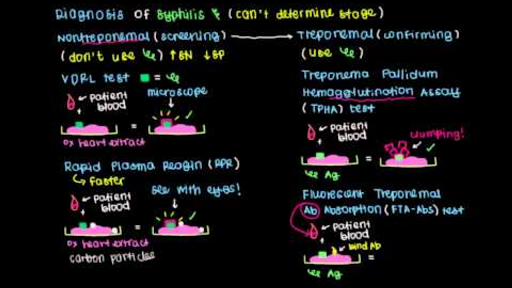 Diagnosis of syphilis (can't determine stage)
Nontreponemal (screening) → Treponemal (confirming)
(don't use ) ↑SN ↓SP
(use )
VDRL test =
microscope
Patient
blood
+
=
ox heart extract
Rapid Plasma Reagin (RPR)
Faster
see with eyes!
Patient
blood
+
=
ox heart extract
carbon particles
Treponema Pallidum
Hemagglutination Assay
(TPHA) test
Patient
blood
clumping!
+
=
Ag
Fluorescent Treponemal
Ab Absorption (FTA-Abs) test
Patient
blood
+
bind Ab
=
Ag